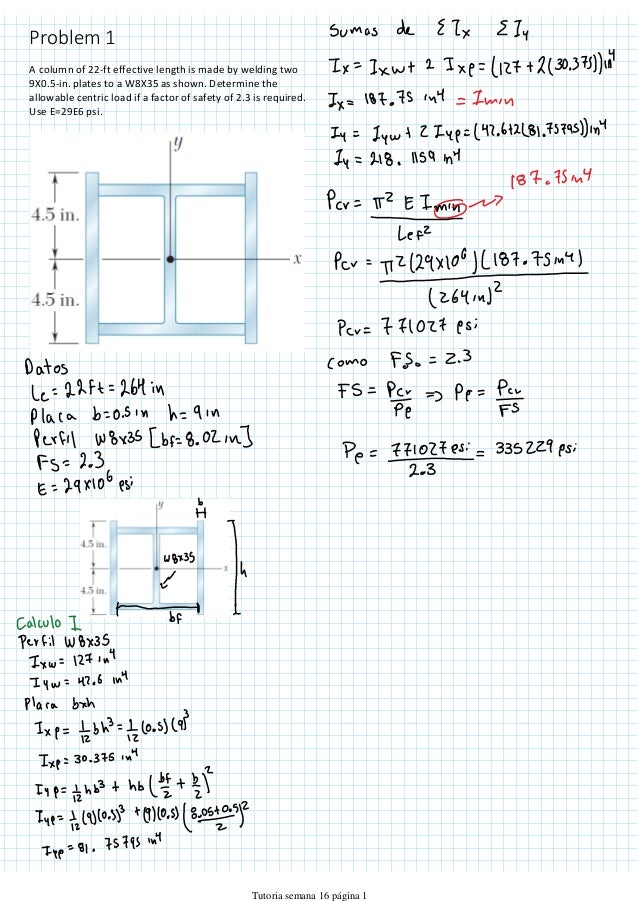 Problem 1
A column of 22-ft effective length is made by welding two
9X0.5-in. plates to a W8X35 as shown. Determine the
allowable centric load if a factor of safety of 2.3 is required.
Use E=29E6 psi.
y
4.5 in.
x
4.5 in.
Datos
Le = 22ft = 264 in
Placa b=0.5 in h= 9in
Perfil W8x35 [bf= 8.02 in]
FS = 2.3
E = 29x10⁶ psi
y
b
H
4.5 in.
W8x35
x
h
4.5 in.
bf
Calculo I
Perfil W8x35
Ixw = 127 in⁴
Iyw = 42.6 in⁴
Placa bxh
Ixp = 1/12 bh³ = 1/12 (0.5)(9)³
Ixp = 30.375 in⁴
Iyp = 1/12 hb³ + hb (bf/2 + b/2)²
Iyp = 1/12 (9)(0.5)³ + (9)(0.5) (8.05+0.5/2)²
Iyp = 81.75795 in⁴
Sumas de ΣIx ΣIy
Ix = Ixw + 2 Ixp = (127 + 2(30.375)) in⁴
Ix = 187.75 in⁴ = Imin
Iy = Iyw + 2 Iyp = (42.6+2(81.75795)) in⁴
Iy = 218.1159 in⁴
187.75 in⁴
Pcr = π² E Imin / Lef²
Pcr = π²(29x10⁶)(187.75 in⁴) / (264 in)²
Pcr = 771027 psi
Como FS. = 2.3
FS = Pcr/Pe ⇒ Pe = Pcr/FS
Pe = 771027 psi / 2.3 = 335229 psi
Tutoria semana 16 página 1